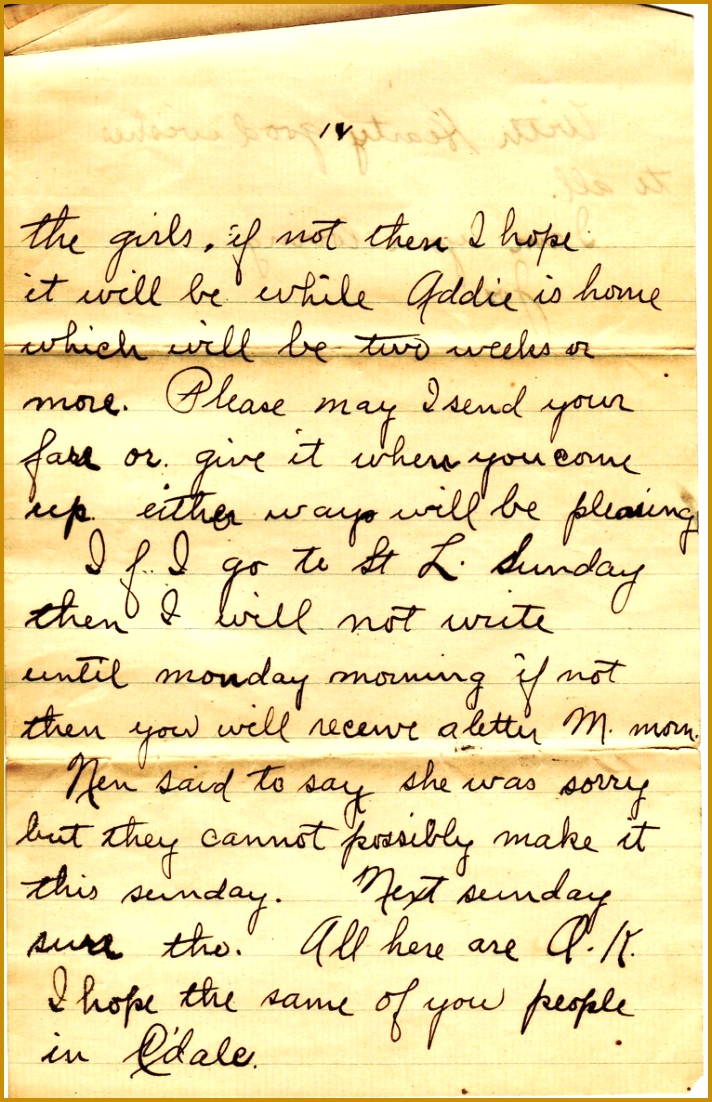 IV
the girls, if not then I hope
it will be while Addie is home
which will be two weeks or
more. Please may I send your
fare or give it when you come
up. either ways will be pleasing
If I go to St L. Sunday
then I will not write
until monday morning if not
then you will receive a letter M. morn.
Nen said to say she was sorry
but they cannot possibly make it
this sunday. Next sunday
sure tho. All here are O.K.
I hope the same of you people
in C'dale.